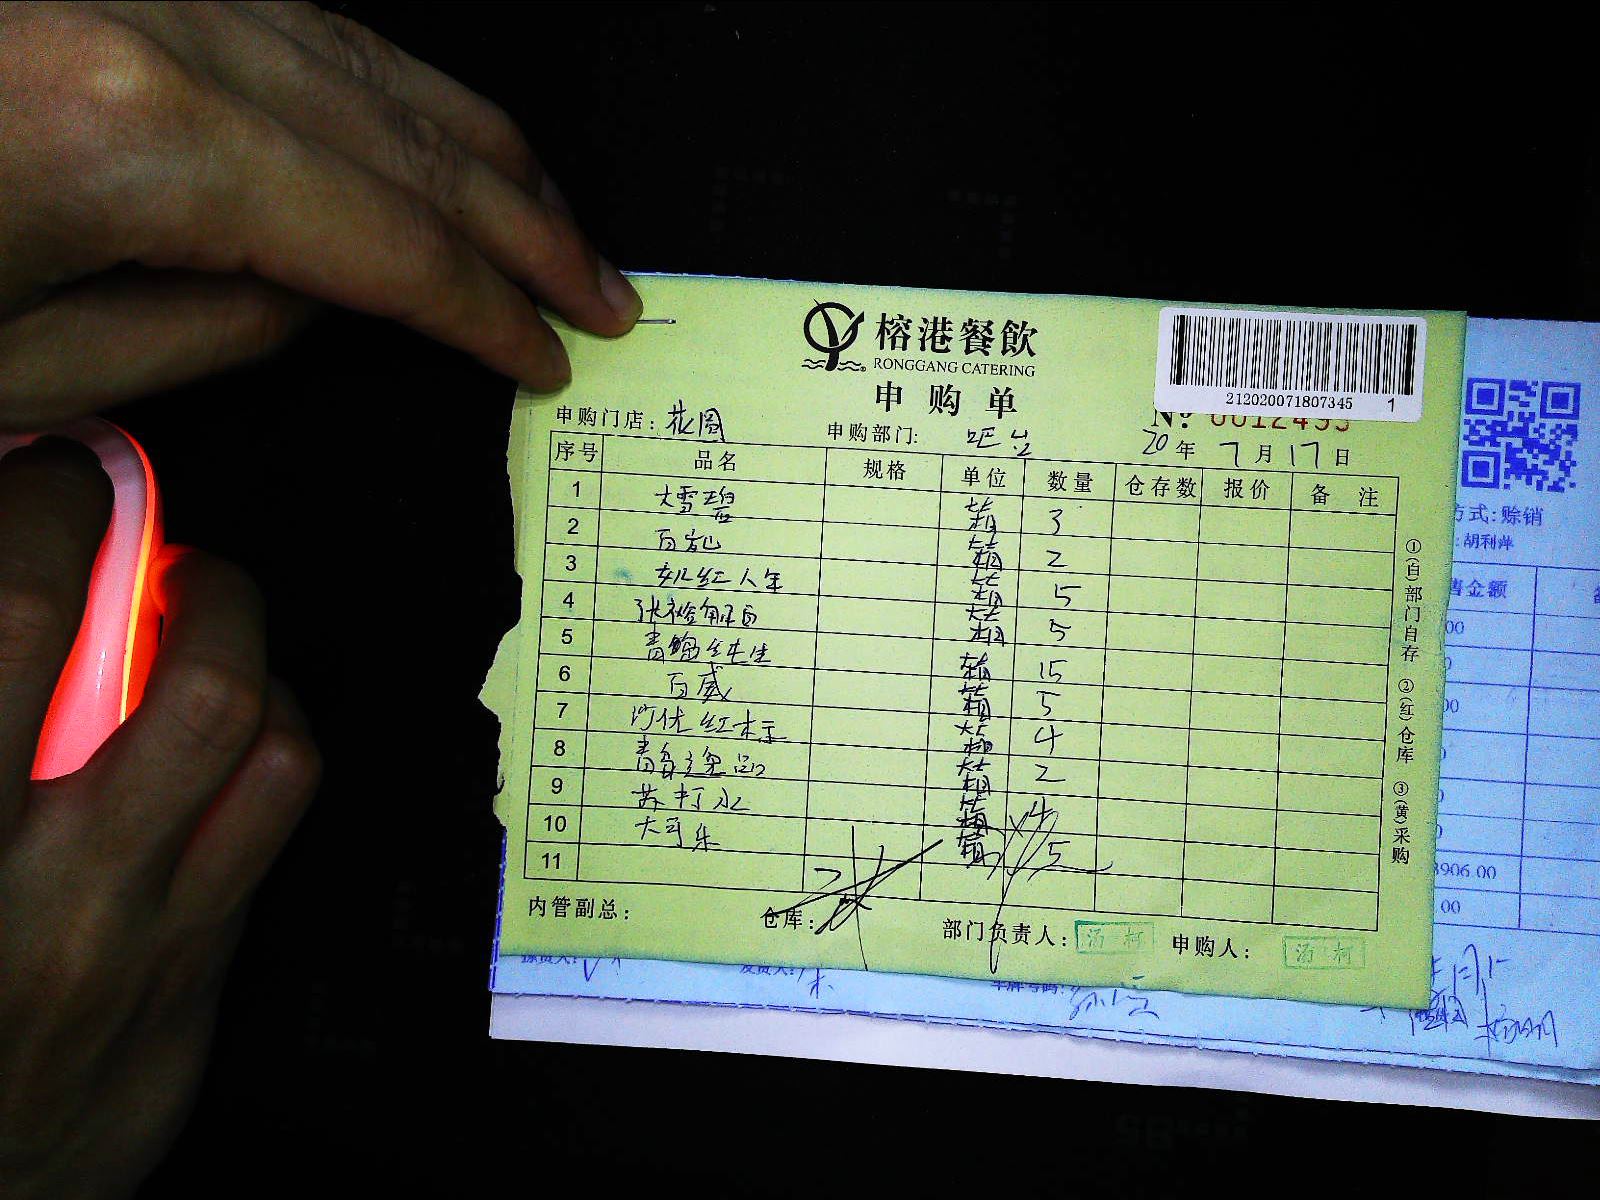 榕港餐飲
RONGGANG CATERING
申购单
212020071807345 1
申购门店: 花园 申购部门: 吧台 20年 7月17日
序号 品名 规格 单位 数量 仓存数 报价 备 注
1 大雪碧 箱 3
2 百岁山 箱 2
3 女儿红八年 箱 15
4 张裕解百 箱 5
5 青岛纯生 箱 15
6 百威 箱 5
7 箱 4
8 青岛逸品 箱 2
9 苏打水 箱 4
10 大可乐 箱 5
11
内管副总: 仓库: 部门负责人: 汤柯 申购人: 汤柯
①(白)部门自存 ②(红)仓库 ③(黄)采购
方式:赊销
:胡利萍
售金额
00
00
3906.00
.00